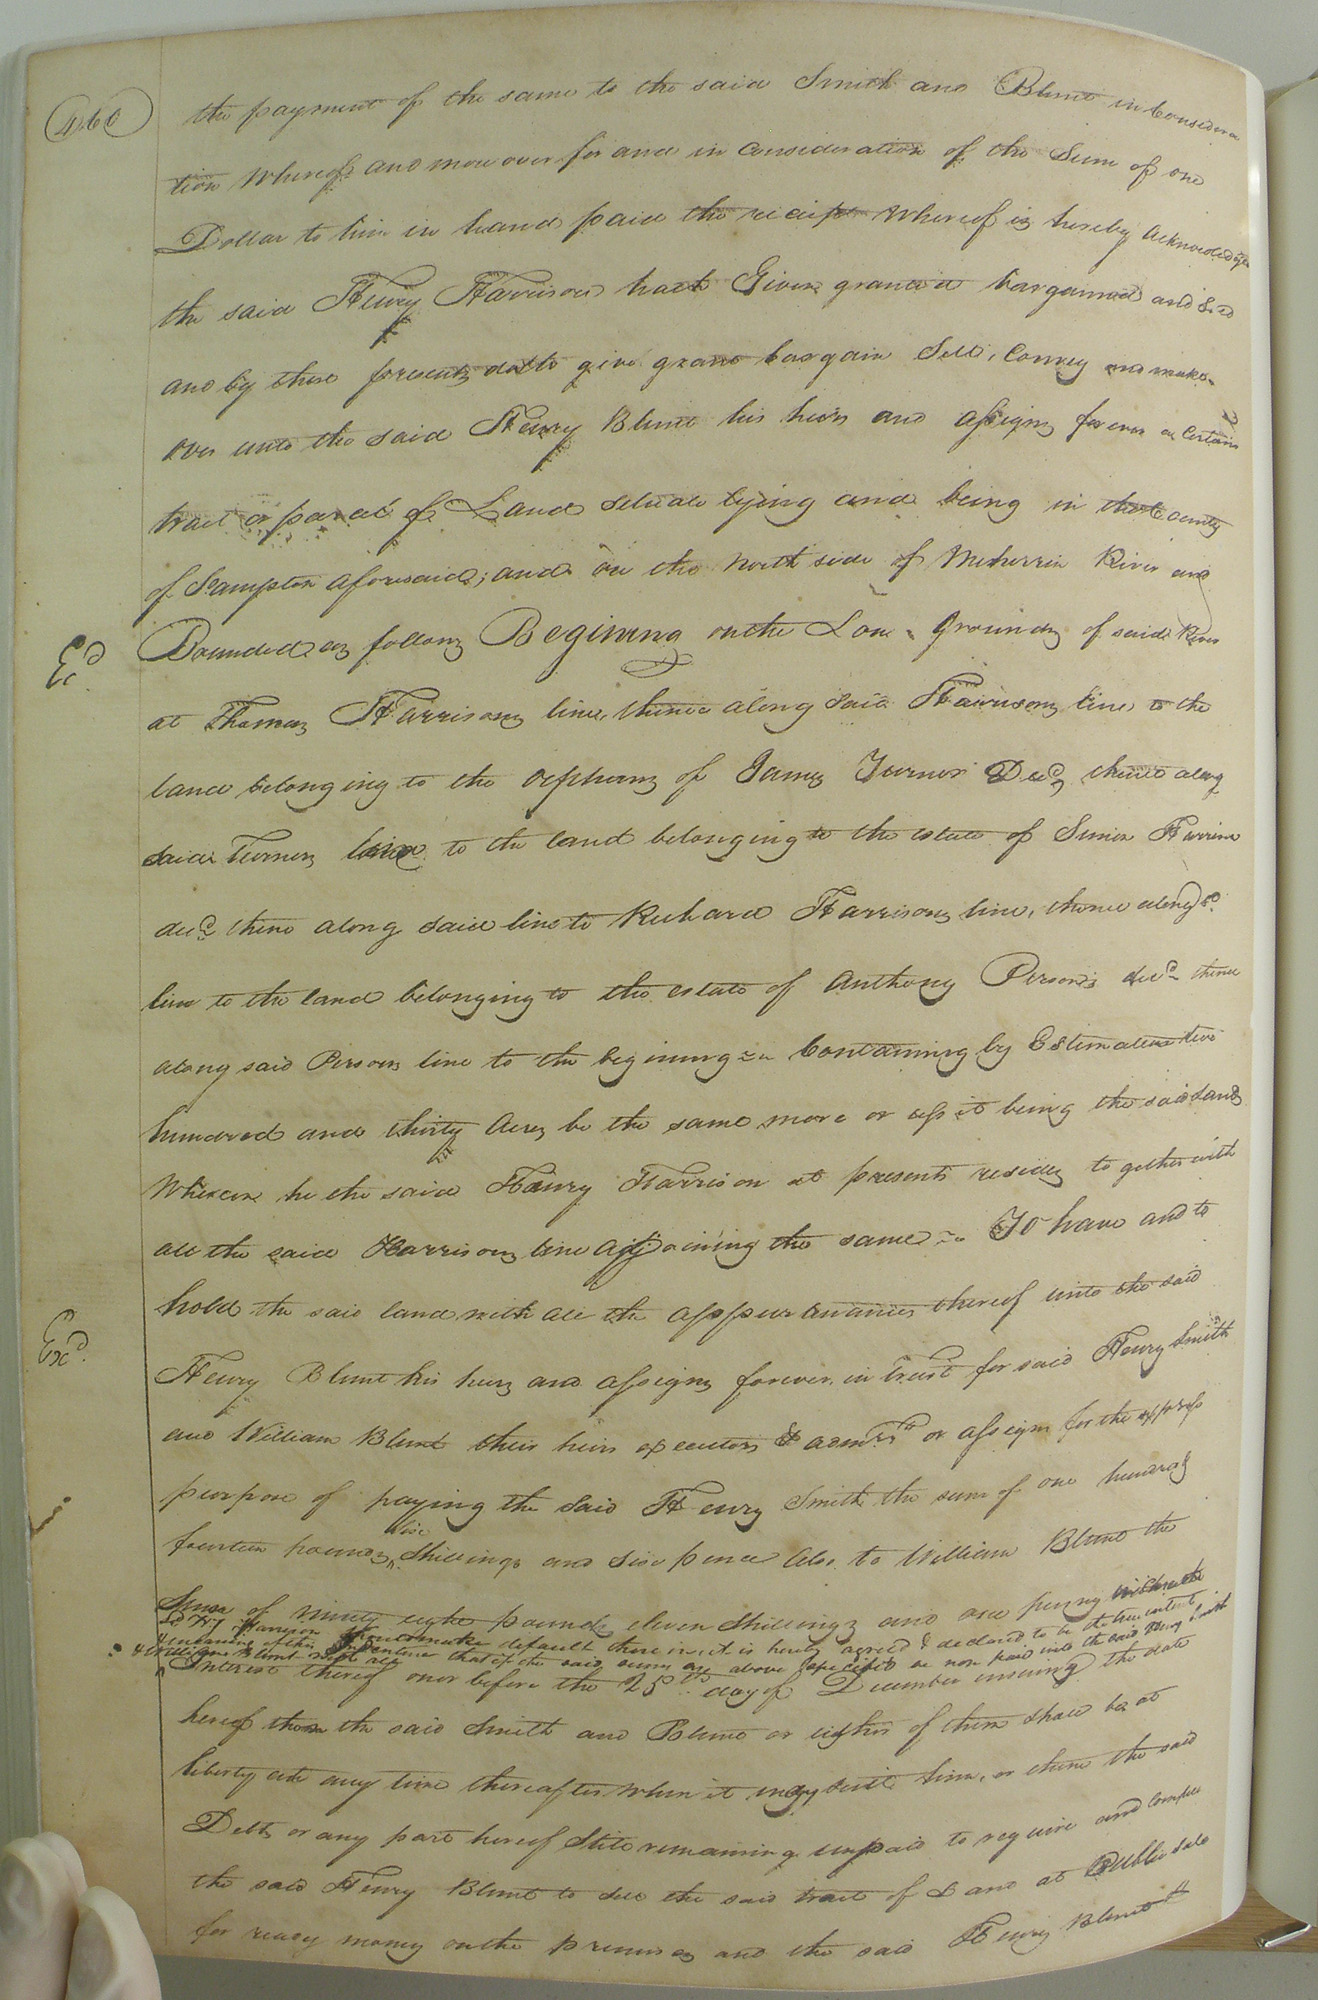 460
the payment of the same to the said Smith and Blunt in Considera
tion Whereof and moreover for and in Consideration of the Sum of one
Dollar to him in hand paid the reciept Whereof is hereby acknowledged
the said Henry Harrison hath Given granted bargained and Sold
and by these presents doth give grant bargain Sell, Convey and make
over unto the said Henry Blunt his heirs and assigns forever a Certain
tract or parcel of Land Setuate lying and being in the County
of S.ampton aforesaid; and on the North side of Meherrin River and
Bounded as follows Begining on the Low Grounds of said River
Exd
at Thomas Harrisons line, thence along said Harrisons line, to the
land belonging to the orphans of James Turner Decd, thence along
said Turners line to the land belonging to the estate of Simon Harrison
decd thence along said line to Richard Harrisons line, thence along sd.
line to the land belonging to the estate of Anthony Person's decd thence
along said Persons line to the begining Containing by Estimation two
hundred and thirty Acres be the same more or less it being the said Lands
Wherein he the said Henry Harrison at presents resides together with
all the said Harrisons line adjoining the same To have and to
hold the said land with all the appurtenances thereof unto the said
Exd.
Henry Blunt his heirs and assigns forever, in trust for said Henry Smith
and William Blunt their heirs executors & admrs or assigns for the express
purpose of paying the said Henry Smith the sum of one hundred
fourteen pounds, five Shillings and Six pence also to William Blunt the
Sum of ninety eight pounds eleven Shillings and one penny
sd Hy Harrison should make default therein, it is hereby agreed & declared to be the true intent
& meaning of this Indenture that if the said sums are above specified be not paid into the said Henry Smith
& William Blunt with all
Interest thereof on or before the 25th day of December insuing the date
hereof then the said Smith and Blunt or either of them shall be at
liberty at any time thereafter When it may suit him, or them the said
Debts or any part hereof Still remaining unpaid to require and Compell
the said Henry Blunt to sell the said tract of Land at Public Sale
for ready money on the premises and the said Henry Blunt